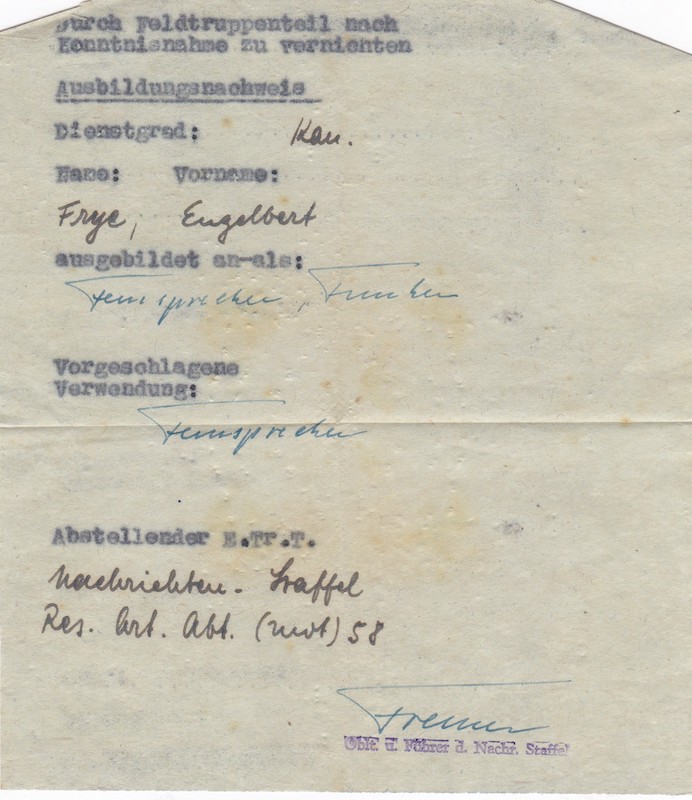 Durch Feldtruppenteil nach
Kenntnisnahme zu vernichten
Ausbildungsnachweis
Dienstgrad: Kan.
Name: Vorname:
Frye, Engelbert
ausgebildet an-als:
Fernsprecher, Funker
Vorgeschlagene
Verwendung:
Fernsprecher
Abstellender E.Tr.T.
Nachrichten-Staffel
Res. Art. Abt. (mot) 58
Oblt. u. Führer d. Nachr. Staffel